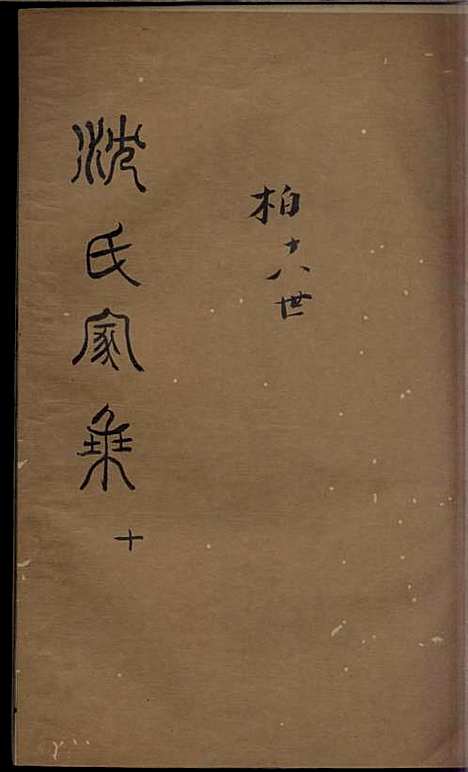 柏十八世
沈氏家乘
十